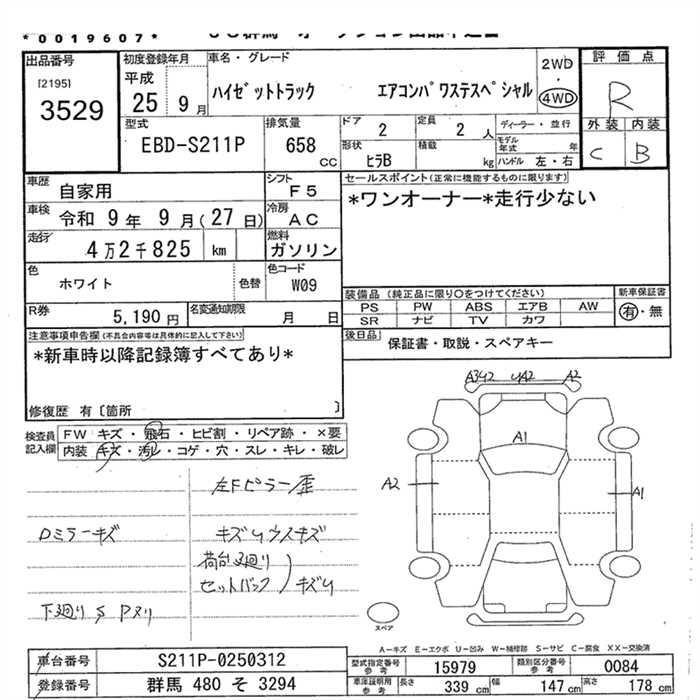 *0019607*
出品番号
[2195]
3529
初度登録年月
平成
25 9月
車名・グレード
ハイゼットトラック エアコンパワステスペシャル
2WD
4WD
評価点
R
外装 内装
C B
型式
EBD-S211P
排気量
658
cc
ドア
2
定員
2 人
ディーラー・並行
形状
ヒラB
積載
kg
モデル年式 年
ハンドル 左・右
車歴
自家用
シフト
F5
車検
令和 9年 9月(27日)
冷房
AC
走行
4万2千825 km
燃料
ガソリン
色
ホワイト
色替
色コード
W09
R券
5,190円
名変通知期限
月 日
セールスポイント(正常に機能するものに限ります)
*ワンオーナー*走行少ない
装備品(純正品に限り○をつけてください)
新車保証書
PS PW ABS エアB AW
SR ナビ TV カワ
有・無
後日品
保証書・取説・スペアキー
注意事項申告欄(不具合内容等は具体的に記入して下さい)
*新車時以降記録簿すべてあり*
修復歴 有〔箇所 〕
検査員記入欄
FW キズ・飛石・ヒビ割・リペア跡・×要
内装 キズ・汚レ・コゲ・穴・スレ・キレ・破レ
左Fピラー歪
Dミラーキズ
キズ
荷台
セットバック
キズ
下廻りS Pヌリ
A2
A2
A1
A2
A1
スペア
A-キズ E-エクボ U-凹み W-補修跡 S-サビ C-腐食 XX-交換済
車台番号
S211P-0250312
型式指定番号参考
15979
類別区分番号参考
0084
登録番号
群馬 480 そ 3294
車庫証明用参考
長さ 339 cm
幅 147 cm
高さ 178 cm